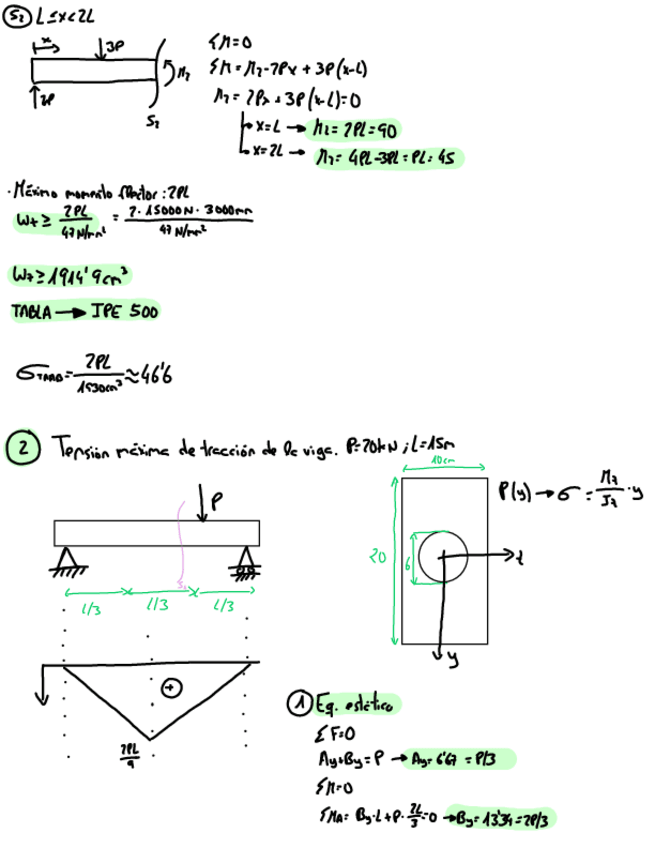 S₂ L≤x<2L
x
3P
2P
M₂
S₂
ΣM=0
ΣM=M₂-2Px+3P(x-L)
M₂=2Px+3P(x-L)=0
x=L → M₂=2PL=90
x=2L → M₂=4PL-3PL=PL=45
·Máximo momento flector: 2PL
W_z ≥ 2PL / 47N/mm² = 2·15000N·3000mm / 47N/mm²
W_z ≥ 1914'9cm³
TABLA → IPE 500
σ = 2PL / 1930cm³ ≈ 46'6
2 Tensión máxima de tracción de la viga. P=20kN; L=15m
P
L/3 L/3 L/3
+
2PL/9
10cm
20
6
z
y
P(y) → σ = M_z/I_z · y
1 Eq. estático
ΣF=0
Ay+By=P → Ay=6'67=P/3
ΣM=0
ΣM_A= By·L+P·2L/3=0 → By=13'34=2P/3